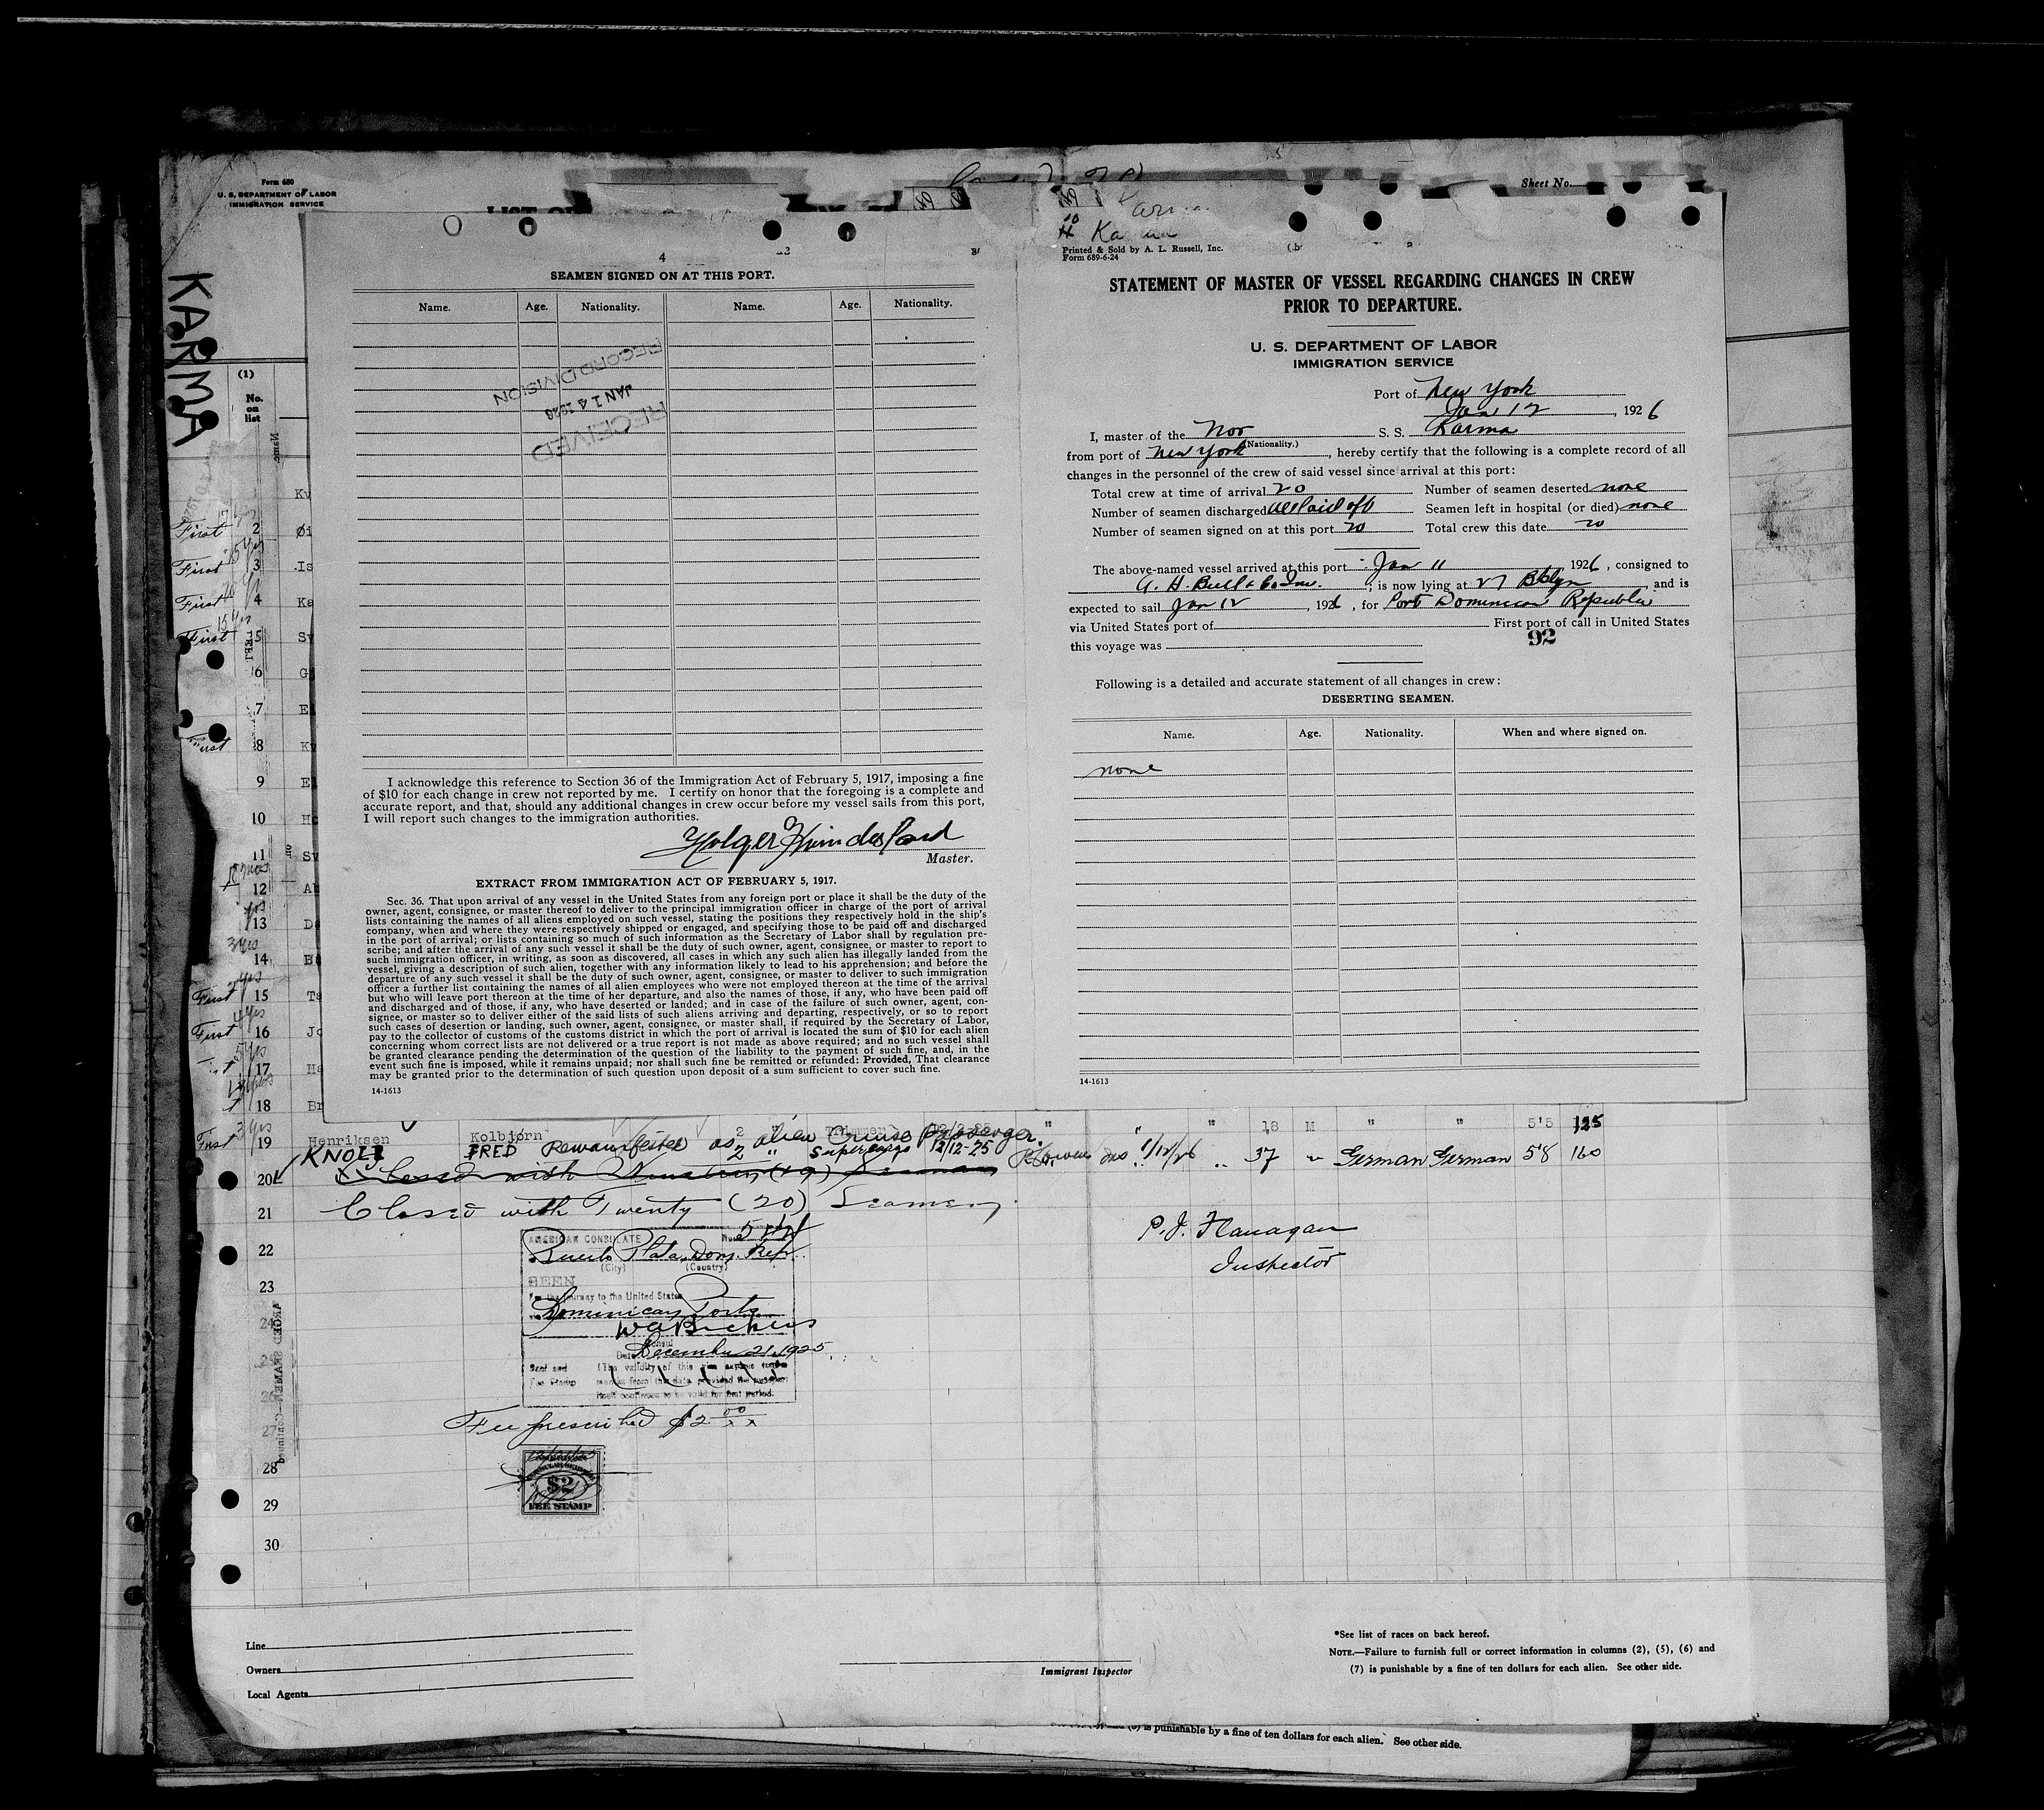 Form 680
U. S. DEPARTMENT OF LABOR
IMMIGRATION SERVICE
Sheet No.
KARMA
(1)
No.
on
list
Kv
First 2 Øi
First 3 Is
First 4 Ka
15 yrs
First 5 Sv
6
7 El
First 8 Kv
9 El
10 Ho
11 Sv
12 Ab
13 Da
3 yrs
14
First 15 Ta
4 yrs
First 16 Jo
17 Ha
18 Br
4
SEAMEN SIGNED ON AT THIS PORT.
Name. Age. Nationality. Name. Age. Nationality.
RECEIVED
JAN 14 1926
RECORD DIVISION
I acknowledge this reference to Section 36 of the Immigration Act of February 5, 1917, imposing a fine
of $10 for each change in crew not reported by me. I certify on honor that the foregoing is a complete and
accurate report, and that, should any additional changes in crew occur before my vessel sails from this port,
I will report such changes to the immigration authorities.
Holger
Master.
EXTRACT FROM IMMIGRATION ACT OF FEBRUARY 5, 1917.
Sec. 36. That upon arrival of any vessel in the United States from any foreign port or place it shall be the duty of the
owner, agent, consignee, or master thereof to deliver to the principal immigration officer in charge of the port of arrival
lists containing the names of all aliens employed on such vessel, stating the positions they respectively hold in the ship's
company, when and where they were respectively shipped or engaged, and specifying those to be paid off and discharged
in the port of arrival; or lists containing so much of such information as the Secretary of Labor shall by regulation pre-
scribe; and after the arrival of any such vessel it shall be the duty of such owner, agent, consignee, or master to report to
such immigration officer, in writing, as soon as discovered, all cases in which any such alien has illegally landed from the
vessel, giving a description of such alien, together with any information likely to lead to his apprehension; and before the
departure of any such vessel it shall be the duty of such owner, agent, consignee, or master to deliver to such immigration
officer a further list containing the names of all alien employees who were not employed thereon at the time of the arrival
but who will leave port thereon at the time of her departure, and also the names of those, if any, who have been paid off
and discharged and of those, if any, who have deserted or landed; and in case of the failure of such owner, agent, con-
signee, or master so to deliver either of the said lists of such aliens arriving and departing, respectively, or so to report
such cases of desertion or landing, such owner, agent, consignee, or master shall, if required by the Secretary of Labor,
pay to the collector of customs of the customs district in which the port of arrival is located the sum of $10 for each alien
concerning whom correct lists are not delivered or a true report is not made as above required; and no such vessel shall
be granted clearance pending the determination of the question of the liability to the payment of such fine, and, in the
event such fine is imposed, while it remains unpaid; nor shall such fine be remitted or refunded: Provided, That clearance
may be granted prior to the determination of such question upon deposit of a sum sufficient to cover such fine.
14-1613
Printed & Sold by A. L. Russell, Inc.
Form 689-6-24
STATEMENT OF MASTER OF VESSEL REGARDING CHANGES IN CREW
PRIOR TO DEPARTURE.
U. S. DEPARTMENT OF LABOR
IMMIGRATION SERVICE
Port of New York
Jan 12, 1926
I, master of the Nor S. S. Karma
(Nationality.)
from port of New York, hereby certify that the following is a complete record of all
changes in the personnel of the crew of said vessel since arrival at this port:
Total crew at time of arrival 20 Number of seamen deserted none
Number of seamen discharged all Paid off Seamen left in hospital (or died) none
Number of seamen signed on at this port 20 Total crew this date 20
The above-named vessel arrived at this port Jan 11 1926, consigned to
A. H. Bull & Co Inc., is now lying at 27 Bklyn and is
expected to sail Jan 12, 1926, for Port Dominican Republic
via United States port of First port of call in United States
this voyage was
92
Following is a detailed and accurate statement of all changes in crew:
DESERTING SEAMEN.
Name. Age. Nationality. When and where signed on.
none
14-1613
First 19 Henriksen Kolbjørn 2 " Trimmer " " " 18 M " " 5'5 125
Remanifested as alien
KNOLL FRED 2 " Supercargo 12/12-25 1/12/26 37 German German 5'8 160
20 Closed with Nineteen (19) Seamen
21 Closed with Twenty (20) Seamen
P. J. Flanagan
Inspector
22
AMERICAN CONSULATE
Puerto Plata, Dom. Rep.
(City) (Country)
23
SEEN
For the journey to the United States
24 Dominican Ports
Consul
Date December 21, 1925
25
26
27 Fee prescribed $2.00
28
$2
FEE STAMP
29
30
Line
Owners
Local Agents
Immigrant Inspector
*See list of races on back hereof.
NOTE.—Failure to furnish full or correct information in columns (2), (5), (6) and
(7) is punishable by a fine of ten dollars for each alien. See other side.
is punishable by a fine of ten dollars for each alien. See other side.